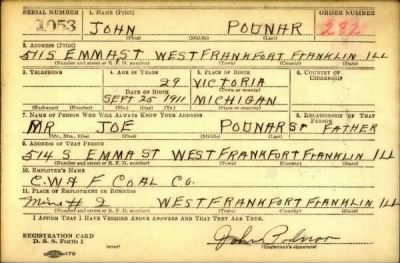 SERIAL NUMBER 1. NAME (Print) ORDER NUMBER
1053 JOHN PODNAR
(First) (Middle) (Last)
2. ADDRESS (Print)
511 S EMMA ST WEST FRANKFORT FRANKLIN ILL
(Number and street or R. F. D. number) (Town) (County) (State)
3. TELEPHONE 4. AGE IN YEARS 5. PLACE OF BIRTH 6. COUNTRY OF CITIZENSHIP
29 VICTORIA
DATE OF BIRTH (Town or county)
SEPT 25 1911 MICHIGAN
(Exchange) (Number) (Mo.) (Day) (Yr.) (State or country)
7. NAME OF PERSON WHO WILL ALWAYS KNOW YOUR ADDRESS 8. RELATIONSHIP OF THAT PERSON
MR JOE PODNAR Sr FATHER
(Mr., Mrs., Miss) (First) (Middle) (Last)
9. ADDRESS OF THAT PERSON
514 S EMMA ST WEST FRANKFORT FRANKLIN ILL
(Number and street or R. F. D. number) (Town) (County) (State)
10. EMPLOYER'S NAME
C. W & F COAL CO.
11. PLACE OF EMPLOYMENT OR BUSINESS
Mine # 2 WEST FRANKFORT FRANKLIN ILL
(Number and street or R. F. D. number) (Town) (County) (State)
I AFFIRM THAT I HAVE VERIFIED ABOVE ANSWERS AND THAT THEY ARE TRUE.
REGISTRATION CARD
D. S. S. Form 1 John Podnar
(Registrant's signature)